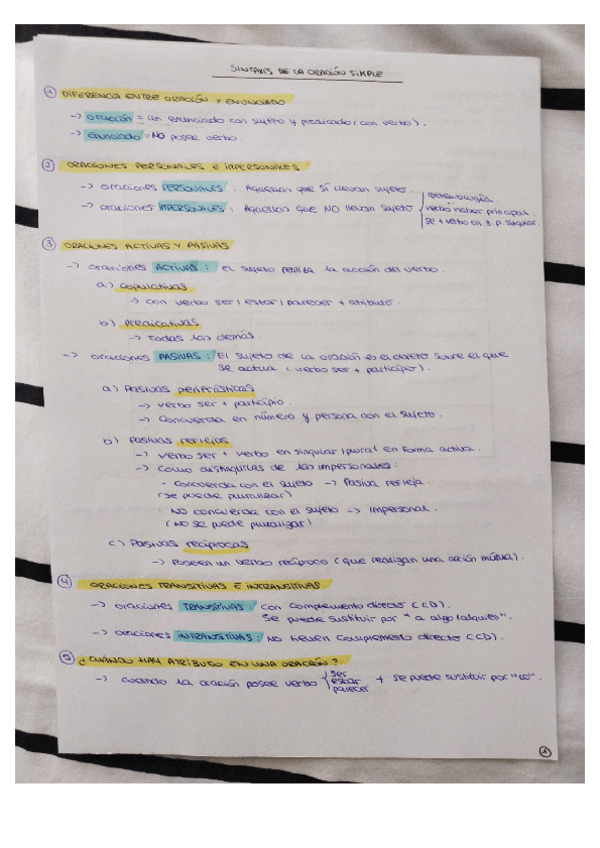 SINTAXIS DE LA ORACIÓN SIMPLE
① DIFERENCIA ENTRE ORACIÓN Y ENUNCIADO
-> oración = un enunciado con sujeto y predicado (con verbo).
-> enunciado = NO posee verbo.
② ORACIONES PERSONALES E IMPERSONALES
-> oraciones PERSONALES : Aquellas que SÍ llevan sujeto.
-> oraciones IMPERSONALES : Aquellas que NO llevan sujeto
meteorología
verbo haber principal
se + verbo en 3. p. singular.
③ ORACIONES ACTIVAS Y PASIVAS
-> oraciones ACTIVAS : El sujeto realiza la acción del verbo.
a) copulativas
-> con verbo ser / estar / parecer + atributo.
b) predicativas
-> Todas las demás.
-> oraciones PASIVAS : El sujeto de la oración es el objeto sobre el que
se actua (verbo ser + participio).
a) Pasivas perifrásticas
-> verbo ser + participio.
-> Concuerda en número y persona con el sujeto.
b) Pasivas reflejas
-> verbo ser + verbo en singular / plural en forma activa.
-> Como distinguirlas de las impersonales:
- concuerda con el sujeto -> Pasiva refleja.
(se puede pluralizar)
· No concuerda con el sujeto -> Impersonal.
(NO se puede pluralizar)
c) Pasivas recíprocas
-> Poseen un verbo recíproco (que realizan una acción mútua).
④ ORACIONES TRANSITIVAS E INTRANSITIVAS
-> oraciones TRANSITIVAS : con complemento directo (CD).
Se puede sustituir por "a algo/alquien".
-> oraciones INTRANSITIVAS : NO tienen complemento directo (CD).
⑤ ¿CUÁNDO HAY ATRIBUTO EN UNA ORACIÓN?
-> cuando la oración posee verbo { ser estar parecer + se puede sustituir por "lo".
①